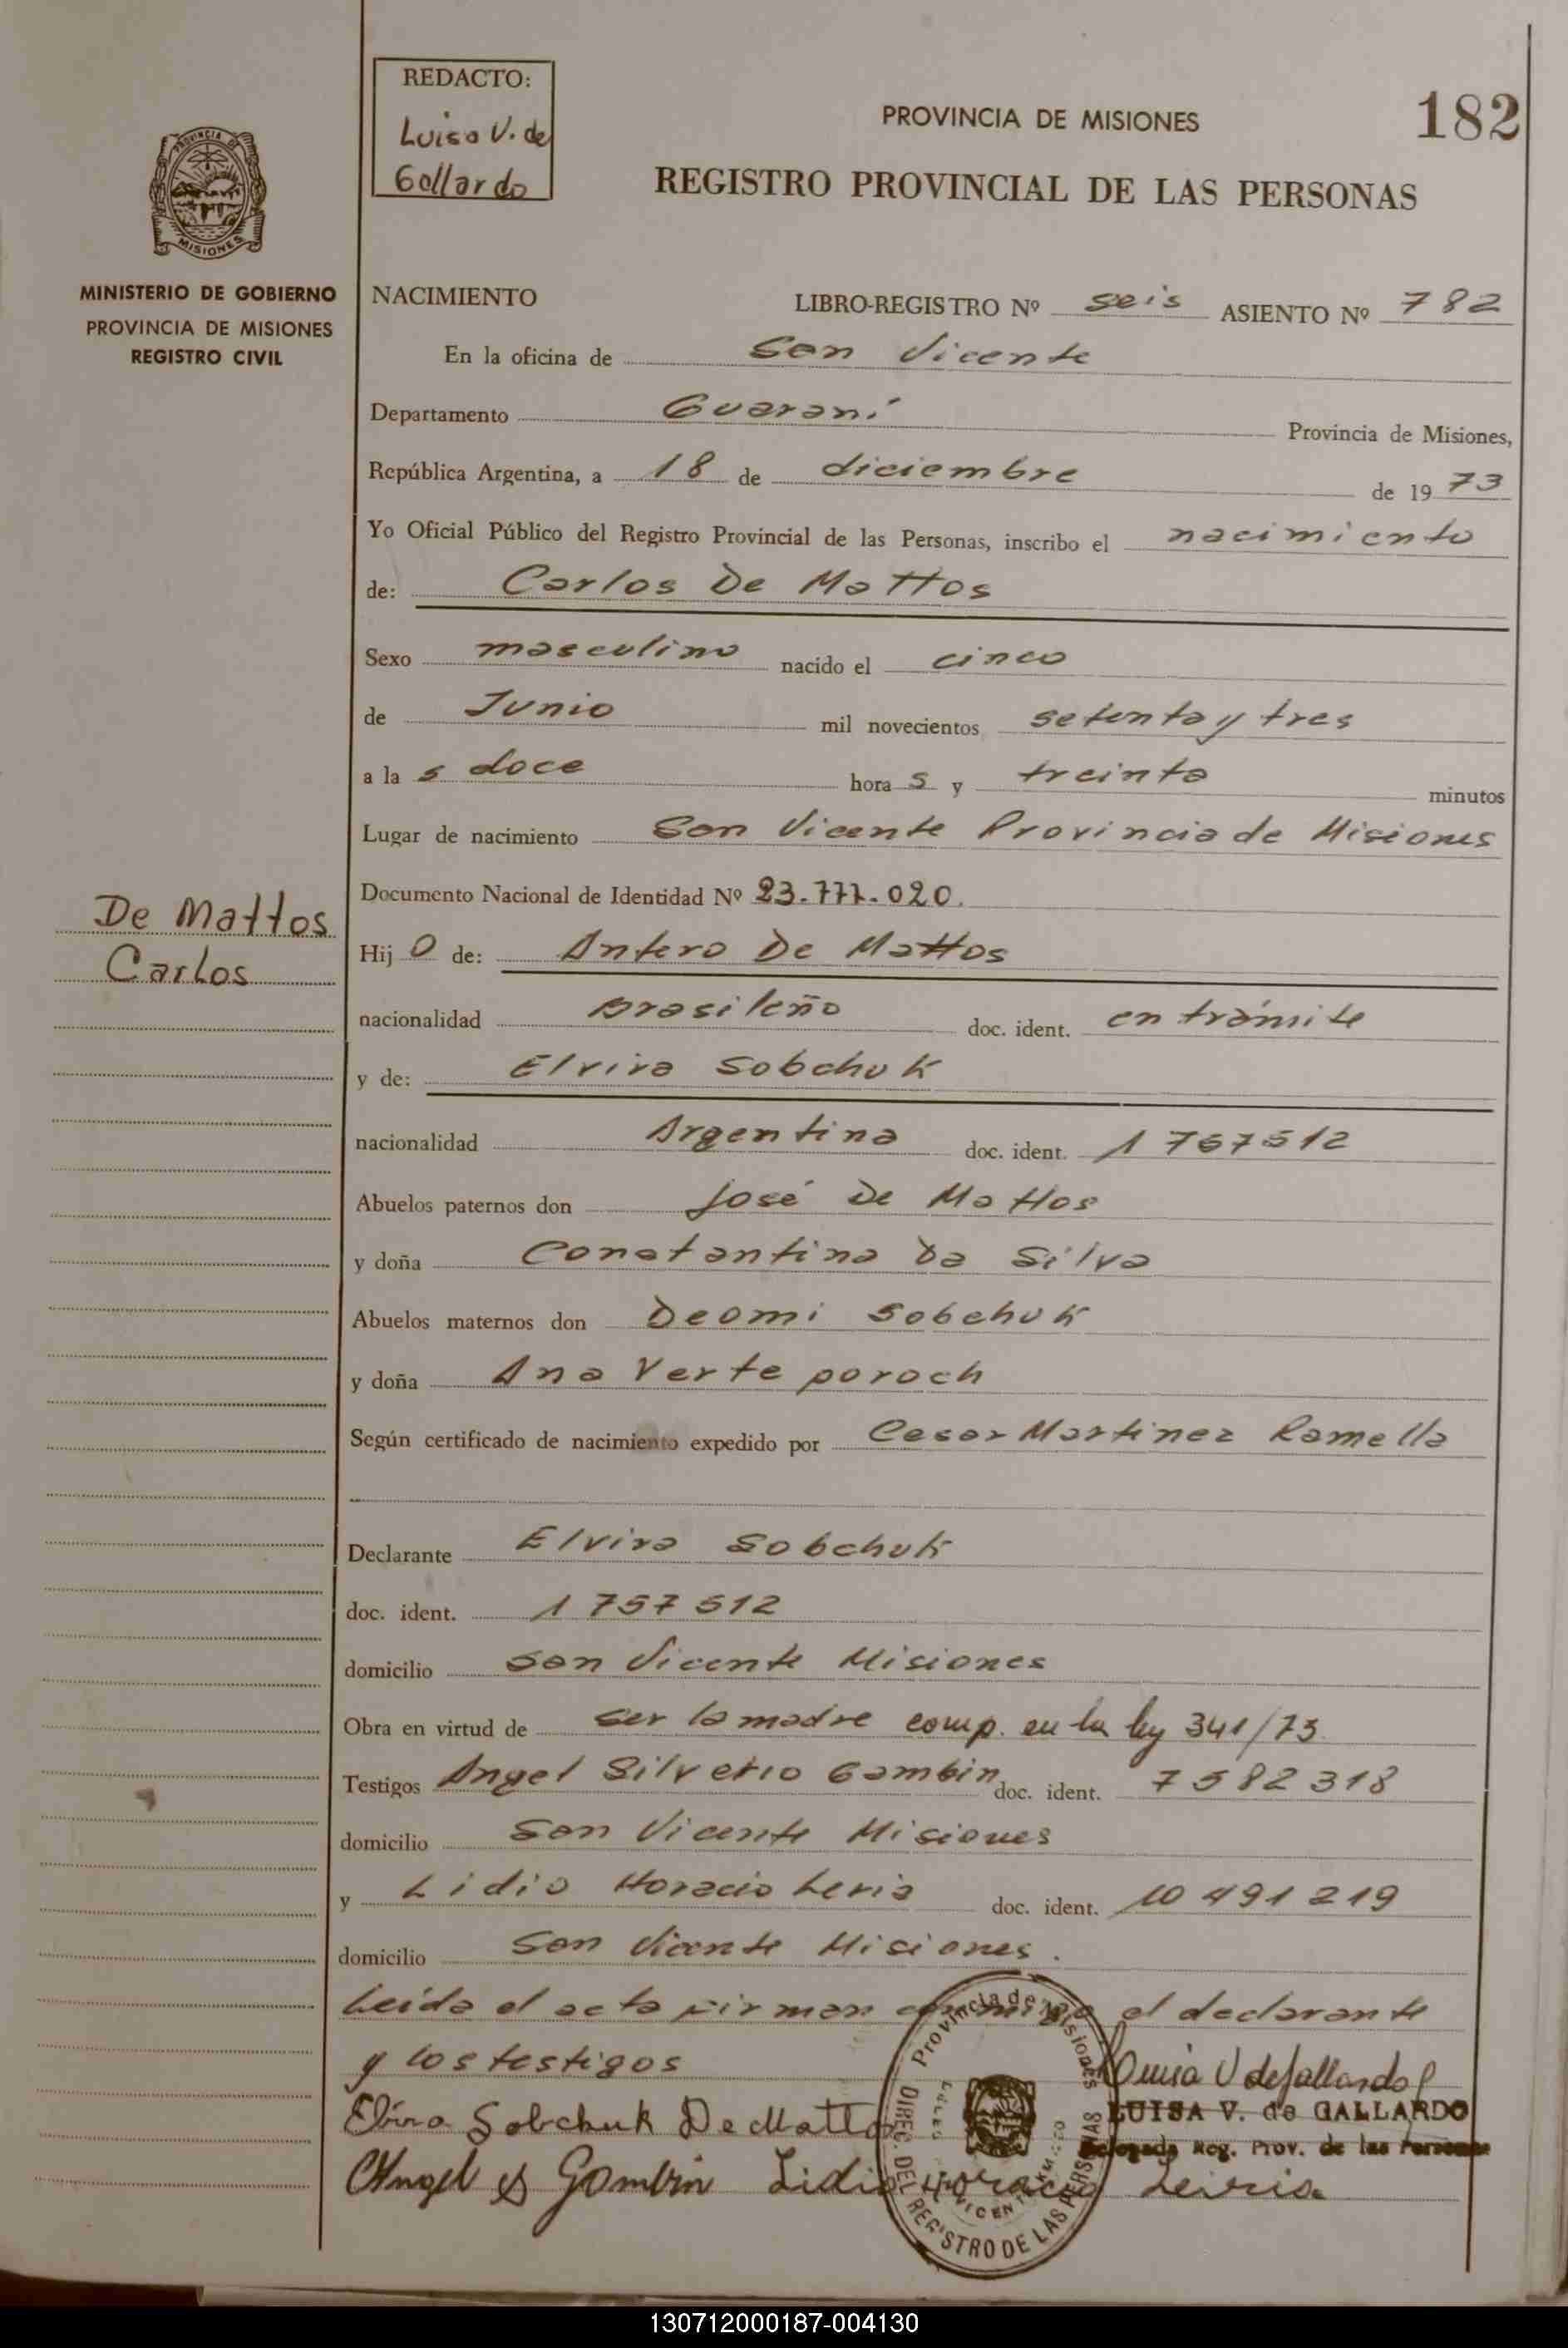 REDACTO:
Luisa V. de
Gallardo
PROVINCIA DE MISIONES
182
REGISTRO PROVINCIAL DE LAS PERSONAS
PROVINCIA DE
MISIONES
MINISTERIO DE GOBIERNO
PROVINCIA DE MISIONES
REGISTRO CIVIL
NACIMIENTO LIBRO-REGISTRO Nº seis ASIENTO Nº 782
En la oficina de San Vicente
Departamento Guaraní Provincia de Misiones,
República Argentina, a 18 de diciembre de 1973
Yo Oficial Público del Registro Provincial de las Personas, inscribo el nacimiento
de: Carlos De Mattos
Sexo masculino nacido el cinco
de Junio mil novecientos setenta y tres
a la s doce hora s y treinta minutos
Lugar de nacimiento San Vicente Provincia de Misiones
Documento Nacional de Identidad Nº 23.777.020.
De Mattos
Carlos
Hij o de: Antero De Mattos
nacionalidad Brasileño doc. ident. en trámite
y de: Elvira Sobchuk
nacionalidad Argentina doc. ident. 1 767512
Abuelos paternos don José De Mattos
y doña Constantina Da Silva
Abuelos maternos don Deomi Sobchuk
y doña Ana Verte poroch
Según certificado de nacimiento expedido por Cesar Martinez Ramella
Declarante Elvira Sobchuk
doc. ident. 1 757 512
domicilio San Vicente Misiones
Obra en virtud de ser la madre comp. en la ley 341/73
Testigos Angel Silverio Gambin doc. ident. 7 582 318
domicilio San Vicente Misiones
y Lidio Horacio Leria doc. ident. 10 491 219
domicilio San Vicente Misiones.
Leida el acta firman conmigo el declarante
y los testigos
Luisa V de Gallardo
Elvira Sobchuk De Mattos
LUISA V. de GALLARDO
Delegada Reg. Prov. de las Personas
Angel S Gambin Lidio Horacio Leiria
Provincia de Misiones
DIREC. DEL REGISTRO DE LAS PERSONAS
130712000187-004130